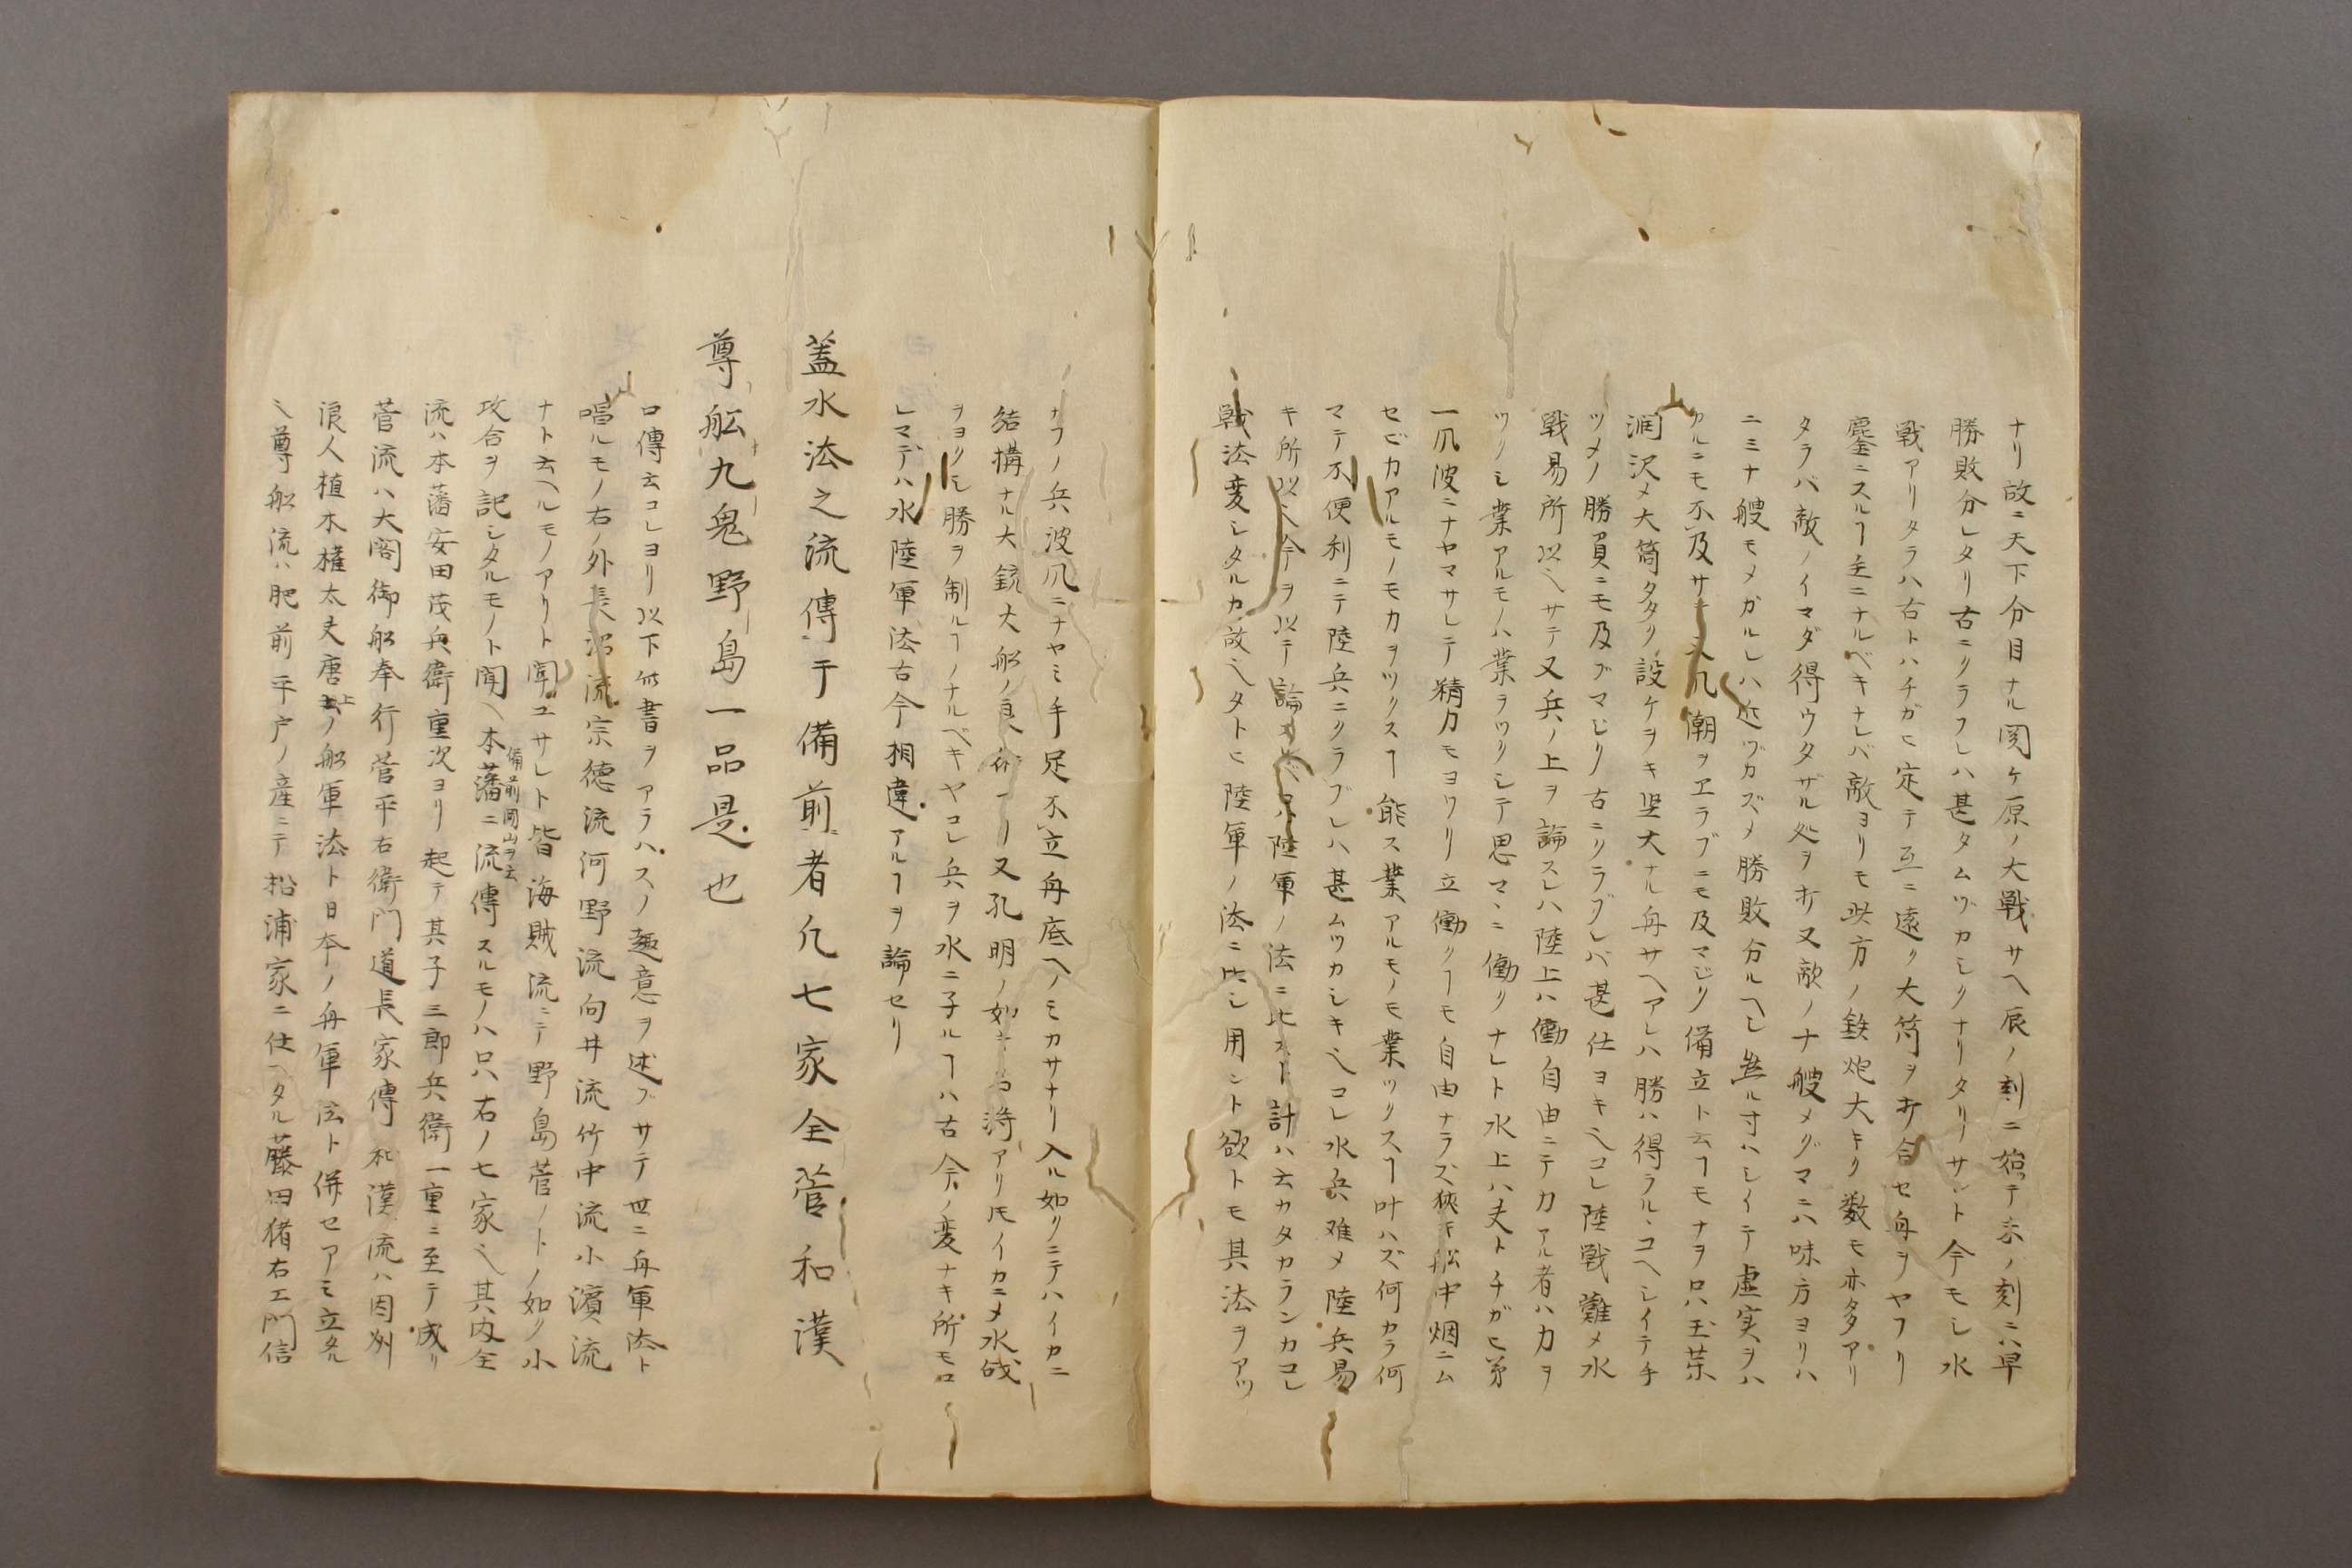 ナリ故ニ天下分目ナル関ケ原ノ大戦サヘ辰ノ刻ニ始テ未ノ刻ニハ早
勝敗分レタリ古ニクラフレハ甚タムツカシクナリタリサレト今モシ水
戦アリタラハ古トハチガヒ定テ互ニ遠ク大筒ヲ打合セ舟ヲヤフリ
鏖ニスルヿ主ニナルベキナレバ敵ヨリモ此方ノ鉄炮大キク数モ亦多アリ
タラバ敵ノイマダ得ウタザル処ヲ打又敵ノナ艘メグマニハ味方ヨリハ
ニミナ艘モメガルレハ近ヅカズメ勝敗分ルヘシ無ル寸ハシイテ虚実ヲハ
カルニモ不及サテ又凡潮ヲヱラブニモ及マジク備立ト云ヿモナヲ只玉薬
潤沢メ大筒タクク設ケヲキ堅大ナル舟サヘアレハ勝ハ得ラルヽコヘシイテチ
ツメノ勝負ニモ及ブマジク古ニクラブレバ甚仕ヨキ也コレ陸戦難メ水
戦易所以也サテ又兵ノ上ヲ論スレハ陸上ハ働自由ニテ力アル者ハ力ヲ
ツクシ業アルモノハ業ヲツクシテ思マヽニ働クナレト水上ハ丈トチガヒ第
一凡波ニナヤマサレテ精力モヨワリ立働クヿモ自由ナラズ狹キ船中烟ニム
セビカアルモノモカヲツクスヿ能ス業アルモノモ業ツクスヿ叶ハズ何カラ何
マテ不便利ニテ陸兵ニクラブレハ甚ムツカシキ也コレ水兵难メ陸兵易
キ所以也今ヲ以テ論スレハ陸軍ノ法ニ比スト計ハ云カタカランカコレ
戦法変シタルカ故也タトヒ陸軍ノ法ニ比シ用ント欲トモ其法ヲアツ
カフノ兵波凡ニナヤミ手足不立舟底ヘノミカサナリ入ル如クニテハイカニ
結構ナル大銃大船ノ良術アリ又孔明ノ如キ名将アリ圧イカニメ水戦
ヲヨクシ勝ヲ制ルヿノナルベキヤコレ兵ヲ水ニ子ルヿハ古今ノ変ナキ所モコ
レマデハ水陸軍法古今相違アルヿヲ論セリ
蓋水法之流傳于備前者凡七家全菅和漢
尊舩九鬼野島一品是也
口傳云コレヨリ以下此書ヲアラハスノ趣意ヲ述ブサテ世ニ舟軍法ト
唱ルモノ右ノ外長沼流宗徳流河野流向井流竹中流小濱流
ナト云ヘルモノアリト聞ユサレト皆海賊流ニテ野島菅ノトノ如ク小
攻合ヲ記シタルモノト聞ヘ本藩備前岡山ヲ云ニ流傳スルモノハ只右ノ七家也其内全
流ハ本藩安田茂兵衛重次ヨリ起テ其子三郎兵衛一重ニ至テ成リ
菅流ハ大閤御船奉行菅平右衛門道長家傳和漢流ハ因州
浪人植木權太夫唐土ノ船軍法ト日本ノ舟軍法ト併セアミ立タル
也尊船流ハ肥前平戸ノ産ニテ松浦家ニ仕ヘタル藤田猪右エ門信